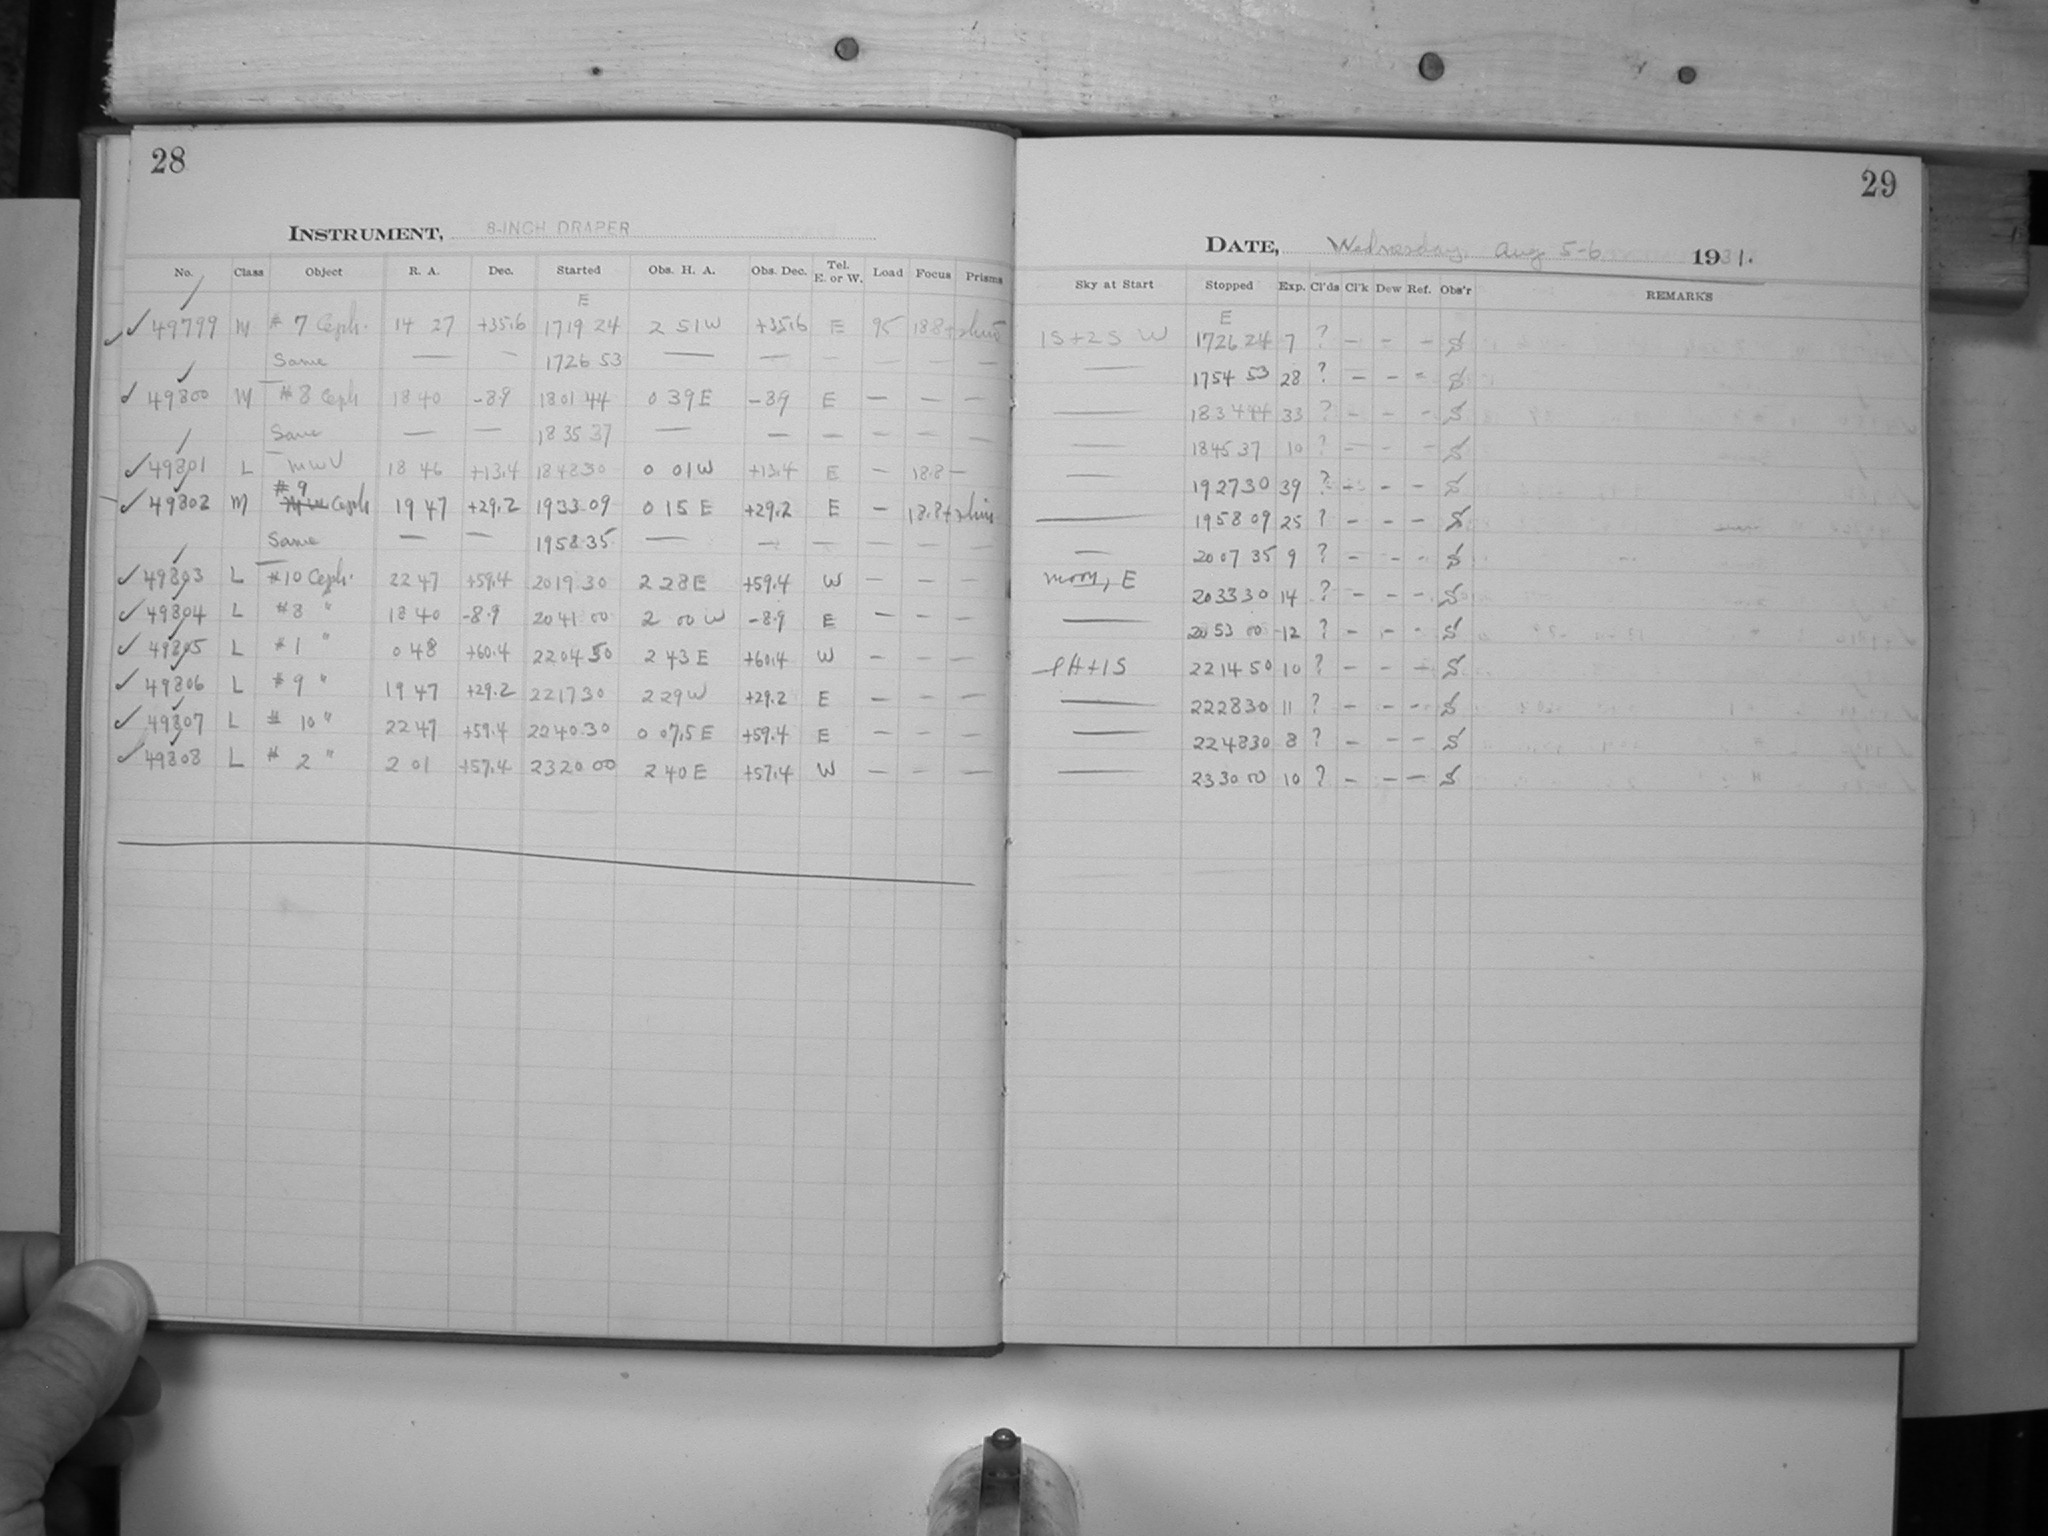 28
INSTRUMENT, 8-INCH DRAPER
No. Class Object R. A. Dec. Started Obs. H. A. Obs. Dec. Tel. E. or W. Load Focus Prisms
E
49799 M # 7 Ceph. 14 27 +35.6 17 19 24 2 51 W +35.6 E 95 18.8+shim
Same — — 17 26 53 — — — — — —
49800 M #8 Ceph 18 40 -8.9 18 01 44 0 39 E -8.9 E — — —
Same — — 18 35 37 — — — — — —
49801 L MWV 18 46 +13.4 18 48 30 0 01 W +13.4 E — 18.8 —
# 9
49802 M Ceph 19 47 +29.2 19 33 09 0 15 E +29.2 E — 18.8+shim
Same — — 19 58 35 — — — — — —
49803 L #10 Ceph. 22 47 +59.4 20 19 30 2 28 E +59.4 W — — —
49804 L #8 " 18 40 -8.9 20 41 00 2 00 W -8.9 E — — —
49805 L #1 " 0 48 +60.4 22 04 50 2 43 E +60.4 W — — —
49806 L #9 " 19 47 +29.2 22 17 30 2 29 W +29.2 E — — —
49807 L # 10 " 22 47 +59.4 22 40 30 0 07.5 E +59.4 E — — —
49808 L # 2 " 2 01 +57.4 23 20 00 2 40 E +57.4 W — — —
29
DATE, Wednesday, Aug 5-6 1931.
Sky at Start Stopped Exp. Cl'ds Cl'k Dew Ref. Obs'r REMARKS
E
1S+2S W 17 26 24 7 ? — — — S
— 17 54 53 28 ? — — — S
— 18 34 44 33 ? — — — S
— 18 45 37 10 ? — — — S
— 19 27 30 39 ? — — — S
— 19 58 09 25 ? — — — S
— 20 07 35 9 ? — — — S
moon, E 20 33 30 14 ? — — — S
— 20 53 00 12 ? — — — S
PH+1S 22 14 50 10 ? — — — S
— 22 28 30 11 ? — — — S
— 22 48 30 8 ? — — — S
— 23 30 00 10 ? — — — S